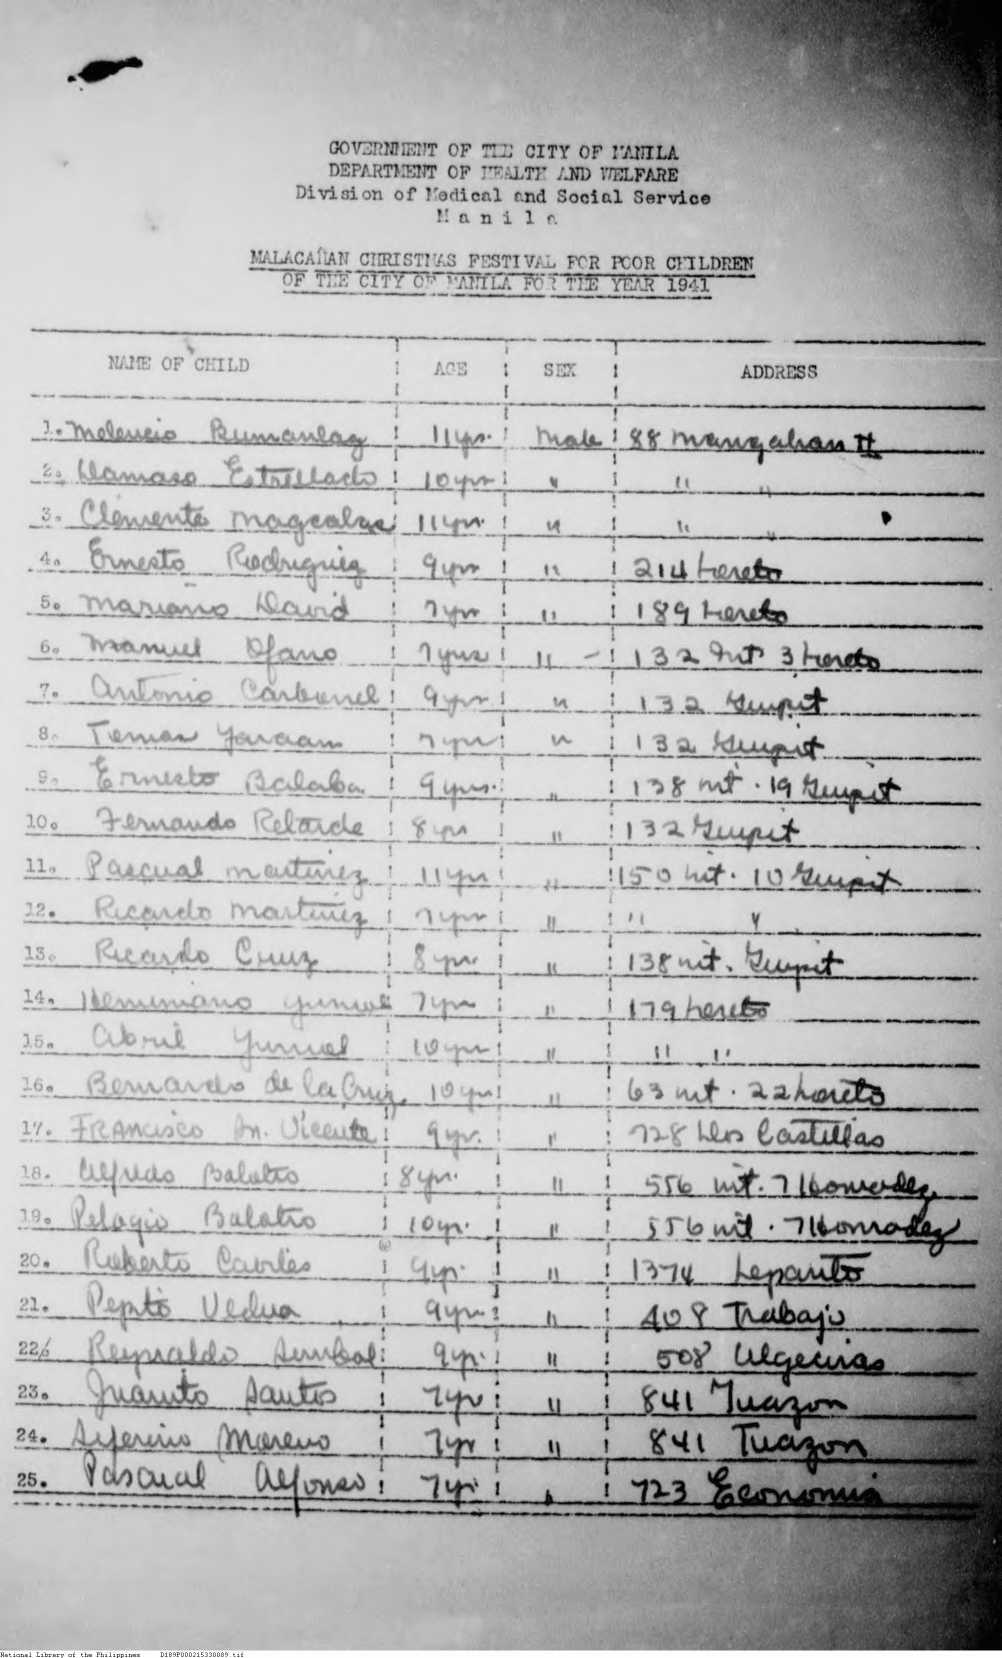 GOVERNMENT OF THE CITY OF MANILA
DEPARTMENT OF HEALTH AND WELFARE
Division of Medical and Social Service
M a n i l a
MALACAÑAN CHRISTMAS FESTIVAL FOR POOR CHILDREN
OF THE CITY OF MANILA FOR THE YEAR 1941
NAME OF CHILD AGE SEX ADDRESS
1. Melencio Bumanlag 11yrs. Male 88 Mangahan II
2. Damaso Estrellado 10yrs " " "
3. Clemente Magcalas 11yrs. " " "
4. Ernesto Rodriguez 9yrs " 214 Loreto
5. Mariano David 7yrs " 189 Loreto
6. Manuel Ofano 7yrs " - 132 Int 3 Loreto
7. Antonio Carbonel 9yrs " 132 Guipit
8. Tomas 7yrs " 132 Guipit
9. Ernesto Balaba 9yrs. " 138 int. 19 Guipit
10. Fernando Relarde 8yrs " 132 Guipit
11. Pascual Martinez 11yrs " 150 int. 10 Guipit
12. Ricardo Martinez 7yrs " " "
13. Ricardo Cruz 8yrs. " 138 int. Guipit
14. 7yrs " 179 Loreto
15. Abril 10yrs " " "
16. Bernardo de la Cruz 10yrs " 63 int. 22 Loreto
17. FRANCISCO Sn. Vicente 9yr. " 728 Dos Castillas
18. Alfredo Balatro 8yr. " 556 int. 7 Honradez
19. Pelagio Balatro 10yr. " 556 int. 7 Honradez
20. Roberto Caviles 9yr. " 1374 Lepanto
21. Pepito Vedua 9yrs " 408 Trabajo
22. Reynaldo Simbol 9yr. " 508 Algeciras
23. Juanito Santos 7yr " 841 Tuazon
24. Seferino Moreno 7yr " 841 Tuazon
25. Pascual Alfonso 7yr " 723 Economia
National Library of the Philippines D189P000215330089.tif